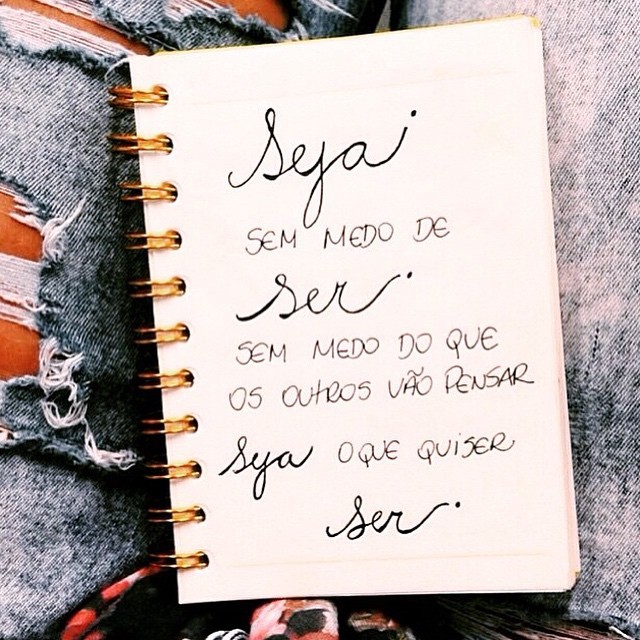 Seja
SEM MEDO DE
Ser.
SEM MEDO DO QUE
OS OUTROS VÃO PENSAR
Seja O QUE QUISER
Ser.